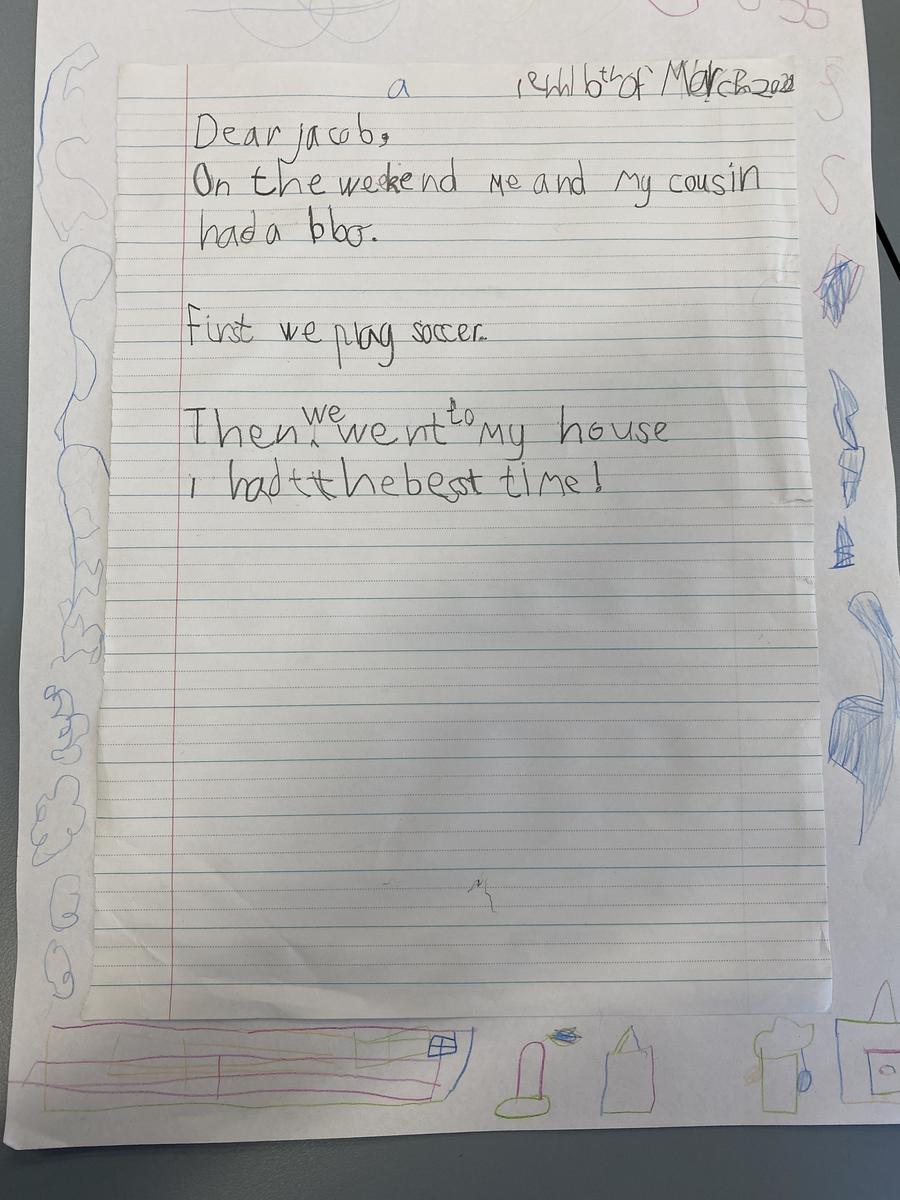 a
of March 2022
Dear jacob,
On the weekend me and my cousin
had a bbq.
First we play soccer.
Then we went to my house
i had the best time!